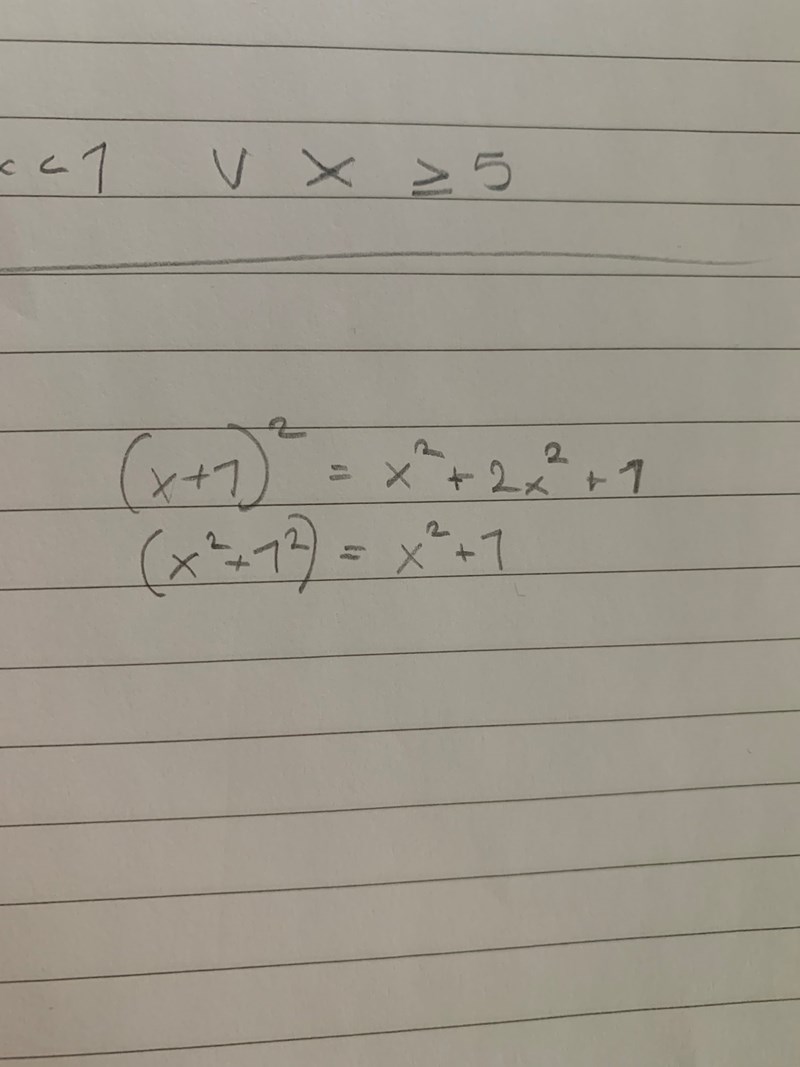 < < 1 ∨ x ≥ 5
(x+1)² = x² + 2x² + 1
(x²+1²) = x² + 1